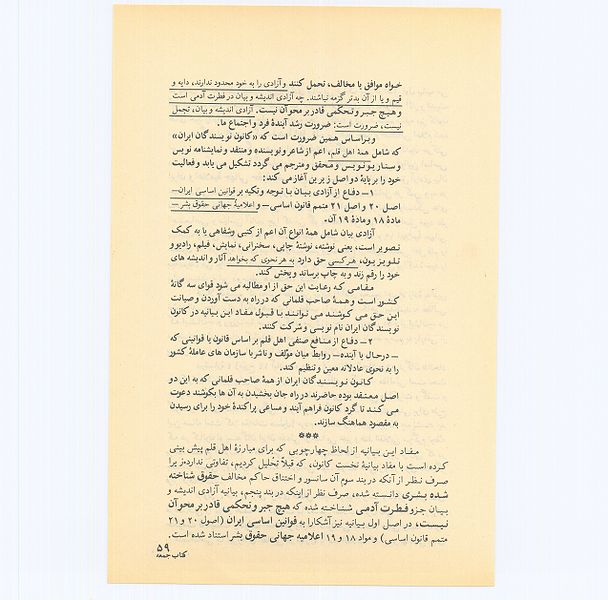 خواه موافق یا مخالف، تحمل کنند و آزادی را به خود محدود ندارند، دایه و
قیم و یا از آن بدتر گزمه نباشند. چه آزادی اندیشه و بیان در فطرت آدمی است
و هیچ جبر و تحکمی قادر بر محو آن نیست. آزادی اندیشه و بیان، تجمل
نیست، ضرورت است: ضرورت رشد آیندهٔ فرد و اجتماع ما.
و براساس همین ضرورت است که «کانون نویسندگان ایران»
که شامل همهٔ اهل قلم، اعم از شاعر و نویسنده و منتقد و نمایشنامه نویس
و سناریونویس و محقق و مترجم می گردد تشکیل می یابد و فعالیت
خود را بر پایهٔ دو اصل زیرین آغاز می کند:
۱– دفاع از آزادی بیان با توجه و تکیه بر قوانین اساسی ایران–
اصل ۲۰ و اصل ۲۱ متمم قانون اساسی– و اعلامیهٔ جهانی حقوق بشر –
مادهٔ ۱۸ و مادهٔ ۱۹ آن.
آزادی بیان شامل همهٔ انواع آن اعم از کتبی و شفاهی یا به کمک
تصویر است، یعنی نوشته، نوشتهٔ چاپی، سخنرانی، نمایش، فیلم، رادیو و
تلویزیون، هرکسی حق دارد به هر نحوی که بخواهد آثار و اندیشه های
خود را رقم زند و به چاپ برساند و پخش کند.
مقامی که رعایت این حق از او مطالبه می شود قوای سه گانهٔ
کشور است و همهٔ صاحب قلمانی که در راه به دست آوردن و صیانت
این حق می کوشند می توانند با قبول مفاد این بیانیه در کانون
نویسندگان ایران نام نویسی و شرکت کنند.
۲– دفاع از منافع صنفی اهل قلم بر اساس قانون یا قوانینی که
– در حال یا آینده– روابط میان مؤلف و ناشر یا سازمان های عاملهٔ کشور
را به نحوی عادلانه معین و تنظیم کند.
کانون نویسندگان ایران از همهٔ صاحب قلمانی که به این دو
اصل معتقد بوده حاضرند در راه جان بخشیدن به آن ها بکوشند دعوت
می کند تا گرد کانون فراهم آیند و مساعی پراکندهٔ خود را برای رسیدن
به مقصود هماهنگ سازند.
***
مفاد این بیانیه از لحاظ چهارچوبی که برای مبارزهٔ اهل قلم پیش بینی
کرده است با مفاد بیانیهٔ نخست کانون، که قبلاً تحلیل کردیم، تفاوتی ندارد؛ زیرا
صرف نظر از آنکه در بند سوم آن سانسور و اختناق حاکم مخالف حقوق شناخته
شده بشری دانسته شده، صرف نظر از اینکه در بند پنجم، بیانیه آزادی اندیشه و
بیان جزو فطرت آدمی شناخته شده که هیچ جبر و تحکمی قادر بر محو آن
نیست، در اصل اول بیانیه نیز آشکارا به قوانین اساسی ایران (اصول ۲۰ و ۲۱
متمم قانون اساسی) و مواد ۱۸ و ۱۹ اعلامیه جهانی حقوق بشر استناد شده است.
۵۹
کتاب جمعه